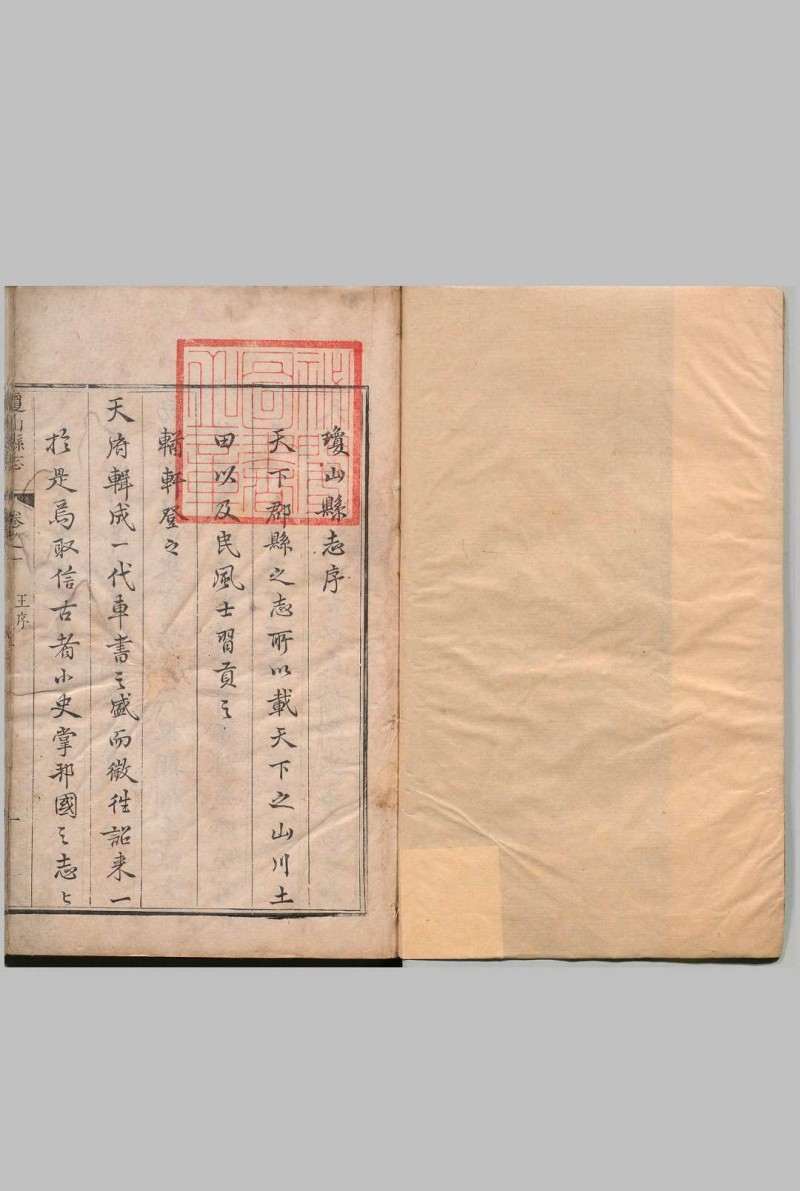 瓊山縣志序
天下郡縣之志所以載天下之山川土
田以及民風士習貢之
輶軒登之
天府輯成一代車書之盛而徵往詔来一
扵是焉取信古者小史掌邦國之志
瓊山縣志 卷之一 王序 一